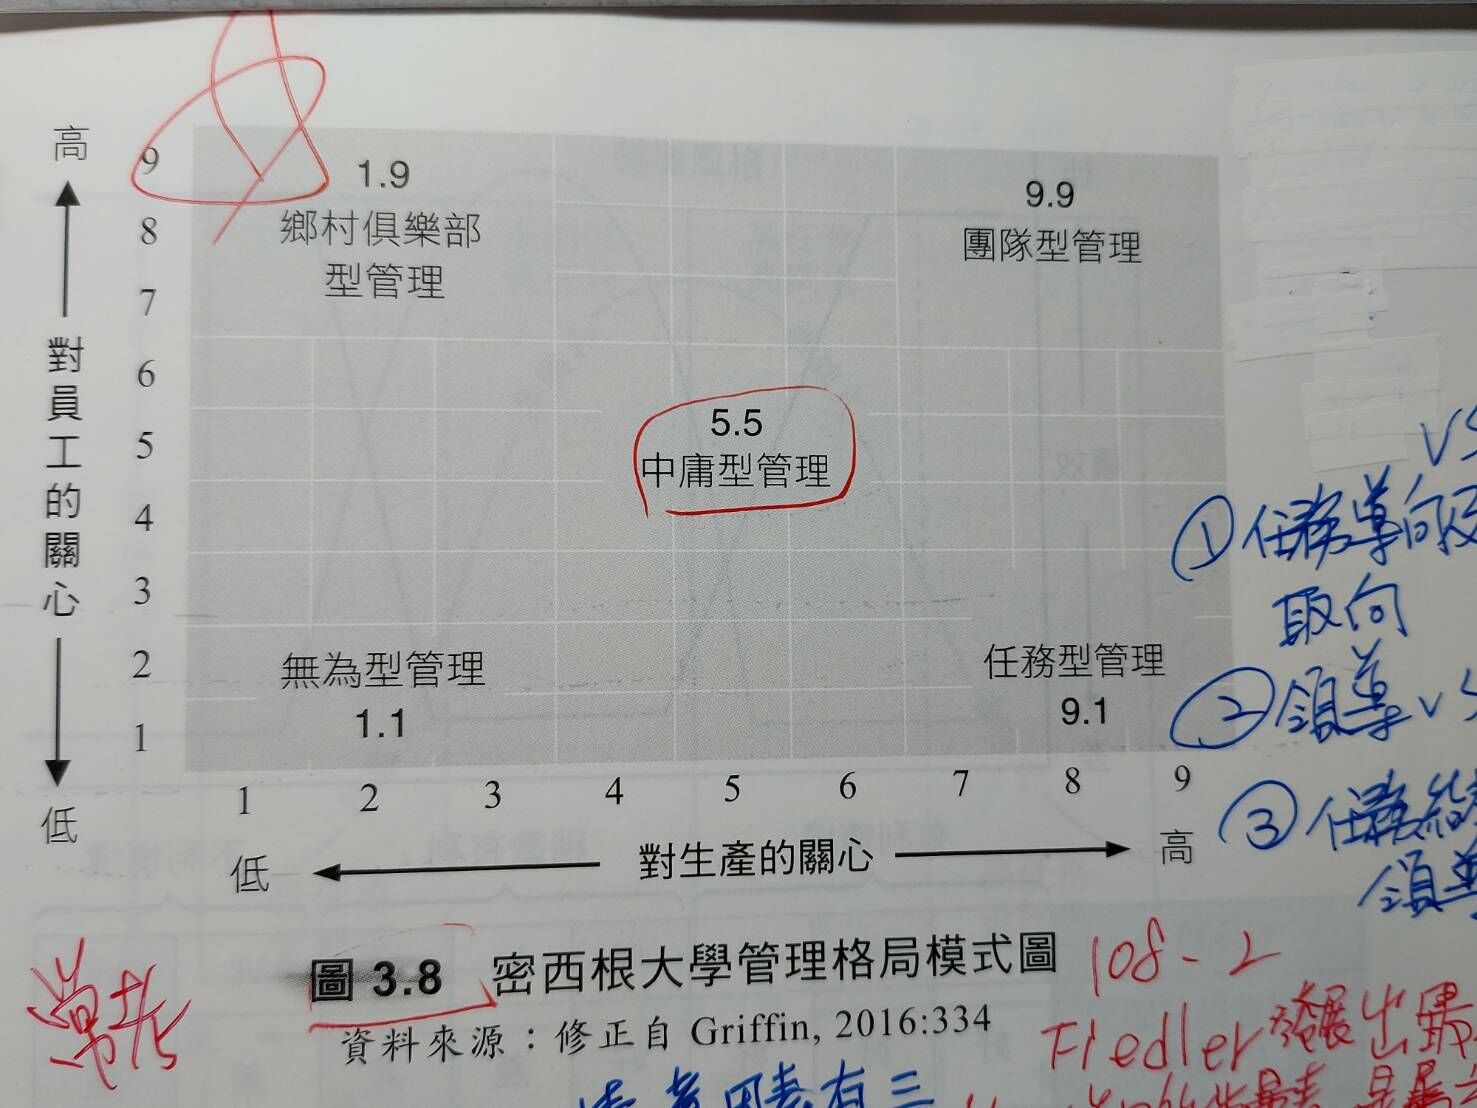 高
9
8
7
6
5
4
3
2
1
低
對員工的關心
1.9
鄉村俱樂部
型管理
9.9
團隊型管理
5.5
中庸型管理
無為型管理
1.1
任務型管理
9.1
1 2 3 4 5 6 7 8 9
低 對生產的關心 高
圖 3.8 密西根大學管理格局模式圖
資料來源：修正自 Griffin, 2016:334
常考
108-2
Fiedler 發展出
VS
① 任務導向
取向
② 領導 VS
③ 任務結
領導
因素有三